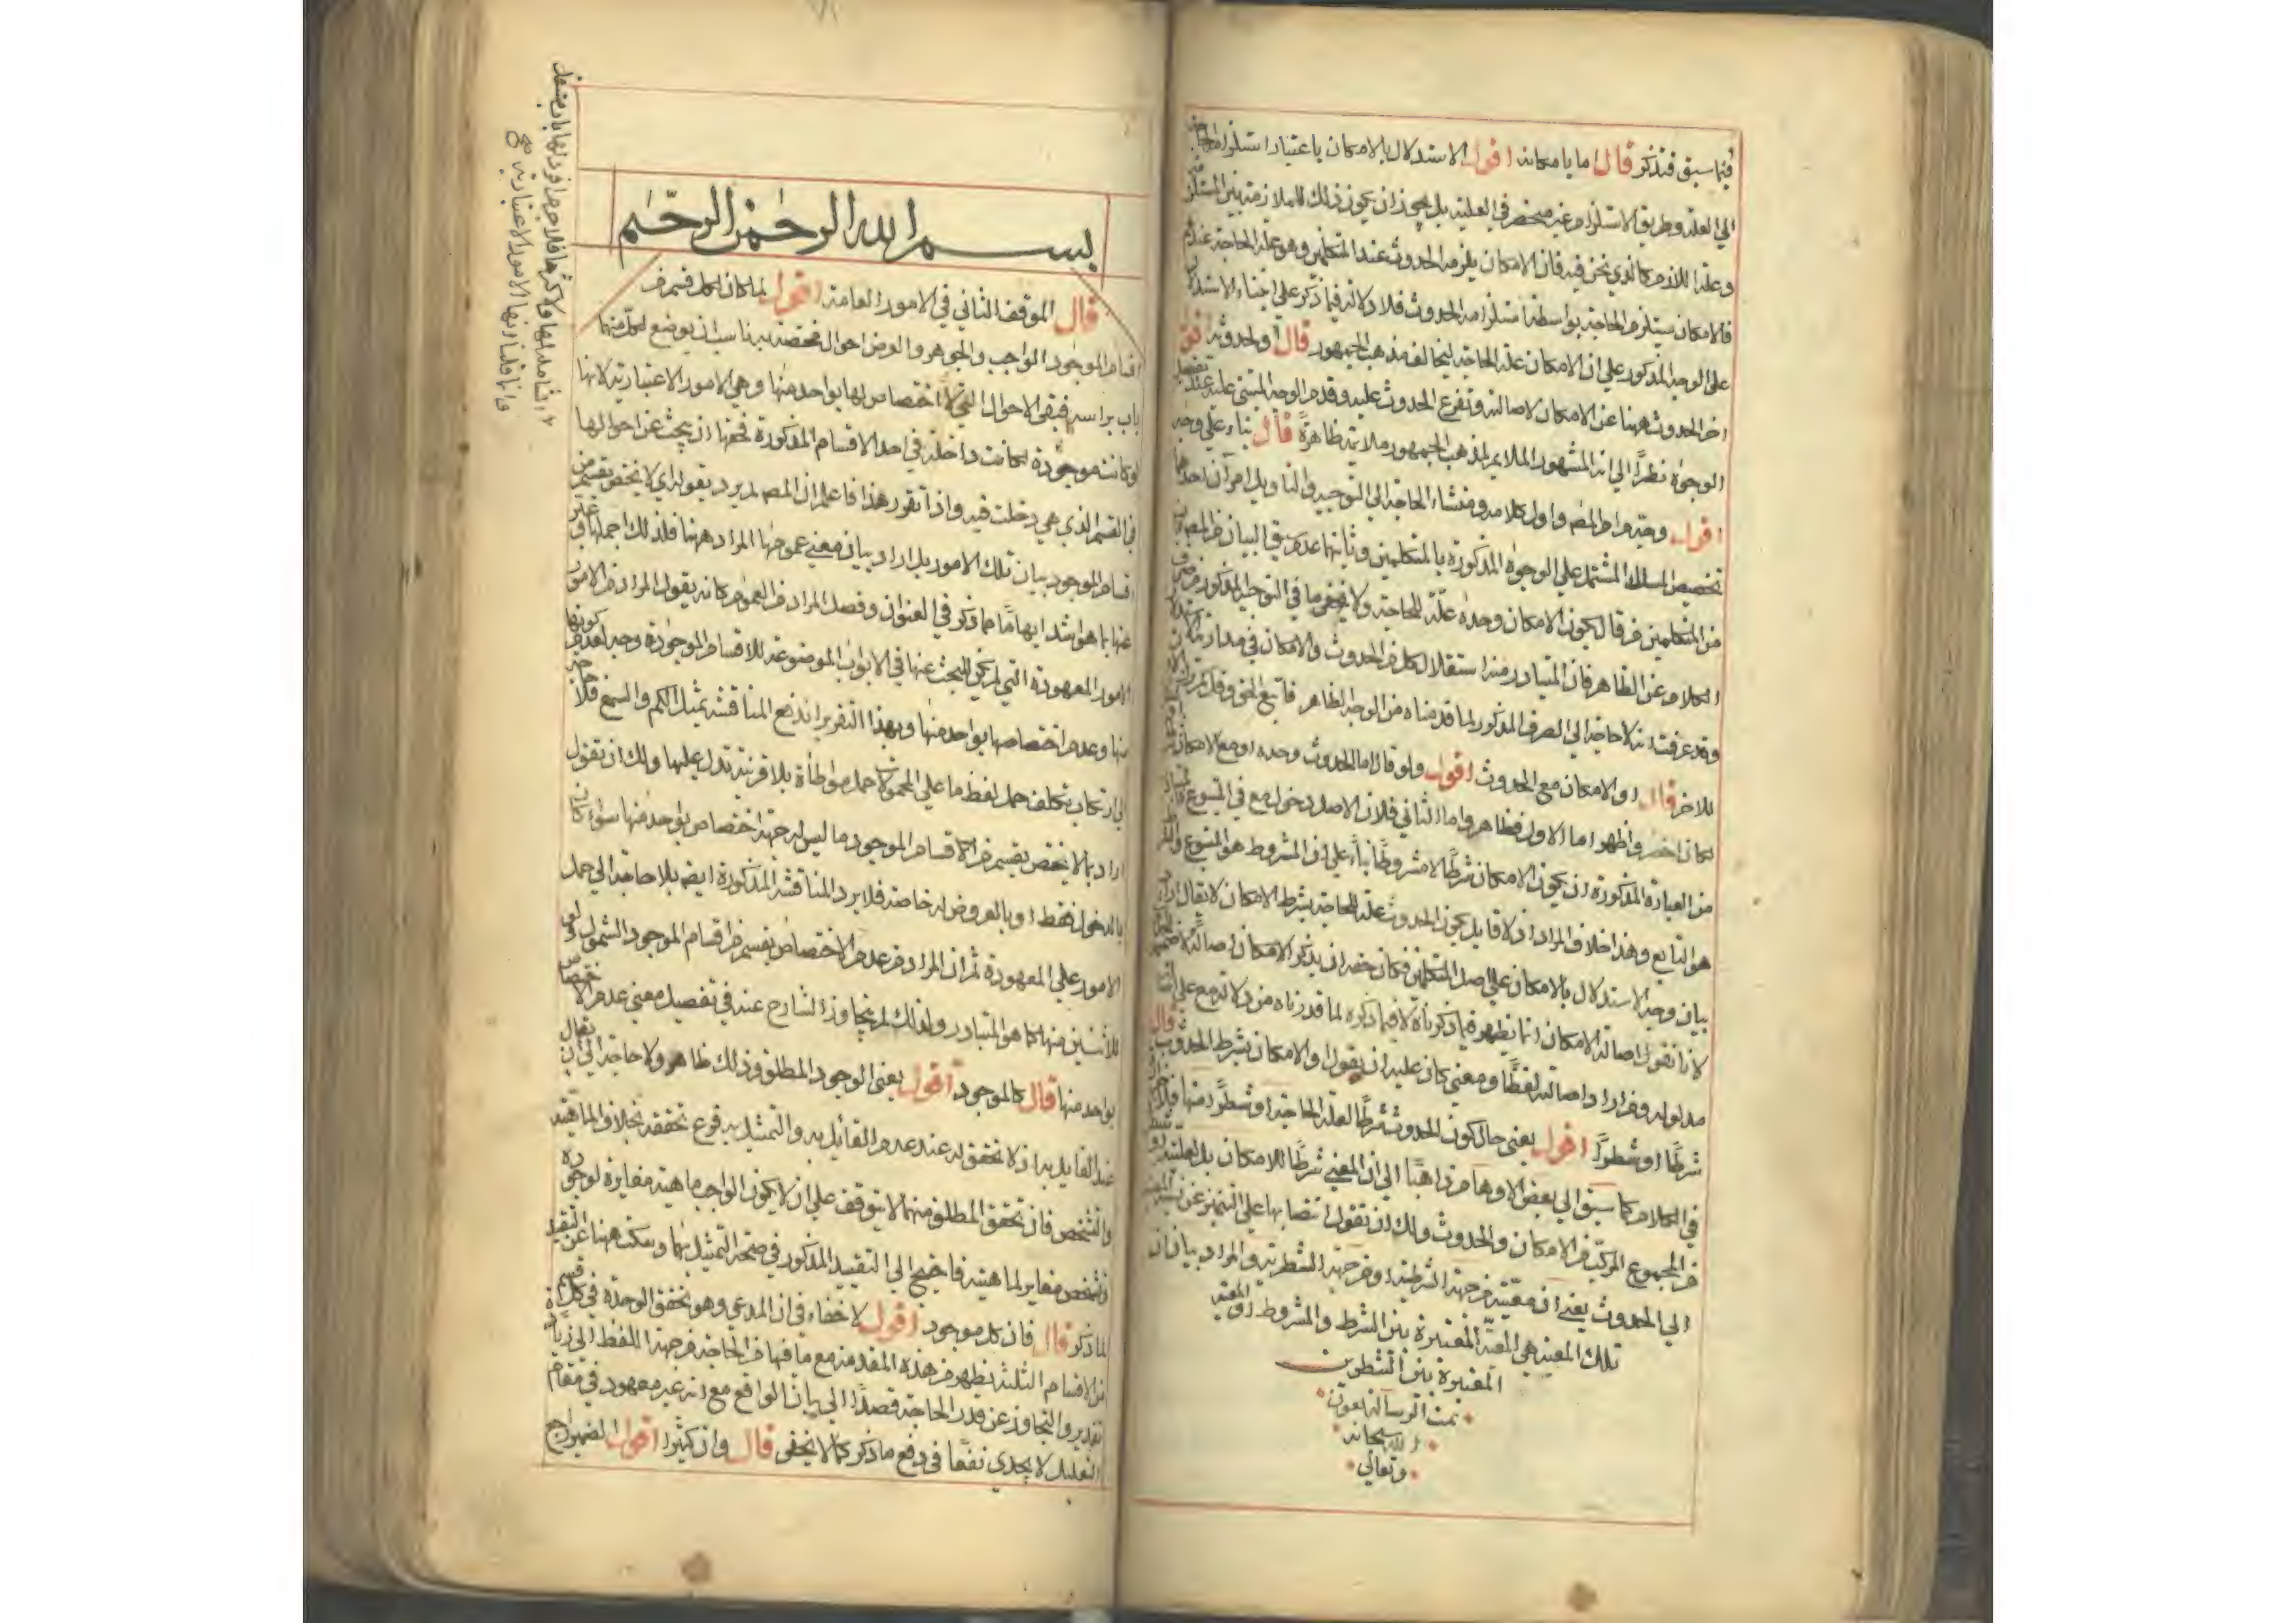 فيما سبق فتذكر قال اما بامكانه اقول الاستدلال بالامكان باعتبار استلزامه الحاجة
الي العلة وطريق الاستلزام غير منحصر في العلية بل يجوز ان يكون ذلك للملازمة بين المستلزم
وعلة اللازم كما الذي نحن فيه فان الامكان يلزمه الحدوث عند المتكلمين وهو علة الحاجة عندهم
فالامكان يستلزم الحاجة بواسطة استلزامه الحدوث فلا دلالة فيما ذكر علي ابتناء الاستدلال
علي الوجه المذكور علي ان الامكان علة الحاجة ليخالف مذهب الجمهور قال او بحدوثه اقول
اخر الحدوث ههنا عن الامكان لاصالته وتفرع الحدوث عليه وقدم الوجه المبني عليه عند تفصيل
الوجوه نظرًا الي انه المشهور الملايم لمذهب الجمهور ملايمة ظاهرة قال بناء علي وجه
اقول وجه مرام المص واول كلامه ومنشاء الحاجة الي التوجيه والتاويل امران احدهما
تخصيص المسلك المشتمل علي الوجوه المذكورة بالمتكلمين وثانيهما عدم في البيان
من المتكلمين من قال بكون الامكان وحده علة للحاجة ولا يخفي ما في التوجيه المذكور من صرف
الكلام عن الظاهر فان المتبادر منه استقلال كل من الحدوث والامكان في مدارية
وقد عرفت انه لا حاجة الي الصرف المذكور لما قدمناه من الوجه الظاهر فاتبع الحق
للاخر قال او الامكان مع الحدوث اقول ولو قال اما الحدوث وحده او مع الامكان
لكان اخصر واظهر اما الاول فظاهر واما الثاني فلان الاصل دخول مع في المتبوع
من العبارة المذكورة ان يكون الامكان شرطًا لا مشروطًا بناءً علي ان المشروط هو المتبوع والشرط
هو التابع وهذا خلاف المراد اذ لا قايل بكون الحدوث علة للحاجة بشرط الامكان لا يقال
بيان وجه الاستدلال بالامكان علي اصل المتكلمين فكان حقه ان يذكر الامكان اصالة
لانا نقول اصالة الامكان انما يظهر فيما ذكرناه لا فيما ذكره لما قدرناه من دلالة مع علي
مدلوله ومن اراد اصالته لفظًا ومعني كان عليه ان يقول او الامكان بشرط الحدوث قال
شرطًا او شطرًا اقول يعني حال كون الحدوث شرطًا لعلة الحاجة او شطرًا منها فلا
في الكلام كما سبق الي بعض الاوهام ذاهبًا الي ان المعني شرطًا للامكان بل لعلية
المجموع المركب من الامكان والحدوث ولك ان تقول انتصابها علي التمييز عن نسبة
الي الحدوث يعني ان معيته من جهة الشرطية او من جهة الشطرية والمراد بيان ان
تلك المعية هي المعية المعتبرة بين الشرط والمشروط او المعية
المعتبرة بين الشطرين
تمت الرسالة بعون
الله سبحانه
وتعالي
بسم الله الرحمن الرحيم
قال الموقف الثاني في الامور العامة اقول لما كان لكل قسم من
اقسام الموجود الواجب والجوهر والعرض احوال مختصة به ناسب ان يوضع لكل منها
باب براسه فبقي الاحوال التي لا اختصاص لها بواحد منها وهي الامور الاعتبارية لانها
لو كانت موجودة لكانت داخلة في احد الاقسام المذكورة فحقها ان يبحث عن احوالها
في القسم الذي هي دخلت فيه واذا تقرر هذا فاعلم ان المص لم يرد بقوله اي لا يختص بقسم من
اقسام الموجود بيان تلك الامور بل اراد بيان معني عمومها المراد ههنا فلذلك اجملها وعبر
عنها بما هو اشد ابهامًا مما ذكر في العنوان وفصل المراد من العموم كانه يقول المراد من الامور
الامور المعهودة التي لم يكن للبحث عنها في الابواب الموضوعة للاقسام الموجودة وجه لعدم كونها
منها وعدم اختصاصها بواحد منها وبهذا التقرير اندفع المناقشة بمثل الكم والسمع فلا حاجة
الي ارتكاب تكلف حمل لفظ ما علي المحمولات حمل مواطأة بلا قرينة تدل عليها ولك ان تقول
اراد بما لا يختص بقسم من الاقسام الموجود ما ليس له جهة اختصاص بواحد منها سواء كان
بالدخول فقط او بالعروض له خاصة فلا يرد المناقشة المذكورة ايضه بلا حاجة الي حمل
الامور علي المعهودة ثم ان المراد من عدم الاختصاص بقسم من اقسام الموجود الشمول
للاثنين منها كما هو المتبادر ولذلك لم يتجاوز الشارح عنه في تفصيل معني عدم الاختصاص
بواحد منها قال كالموجود اقول يعني الوجود المطلق وذلك ظاهر ولا حاجة الي ان يقال
عند القايل به اذ لا تحقق له عند عدم القائل به والتمثيل به فرع تحققه بخلاف الماهية
والتشخص فان تحقق المطلق منهما لا يتوقف علي ان لا يكون الواجب ماهية مغايرة لوجوده
وتشخص مغاير لماهيته فاحتيج الي التقييد المذكور في صحة التمثيل بهما وسكت ههنا عن التقييد
لما ذكر قال فان كل موجود اقول لا خفاء في ان المدعي وهو تحقق الوحدة في كل قسم
من الاقسام الثلثة يظهر من هذه المقدمة مع ما فيها من الحاجة من جهة اللفظ الي زيادة
تقدير والتجاوز عن قدر الحاجة قصدًا الي بيان الواقع مع انه غير معهود في مقام
التعليل لا يجدي نفعًا في دفع ما ذكر كما لا يخفي قال وان كثيرا اقول الضمير راجع
وانا قلنا الامور الاعتبارية